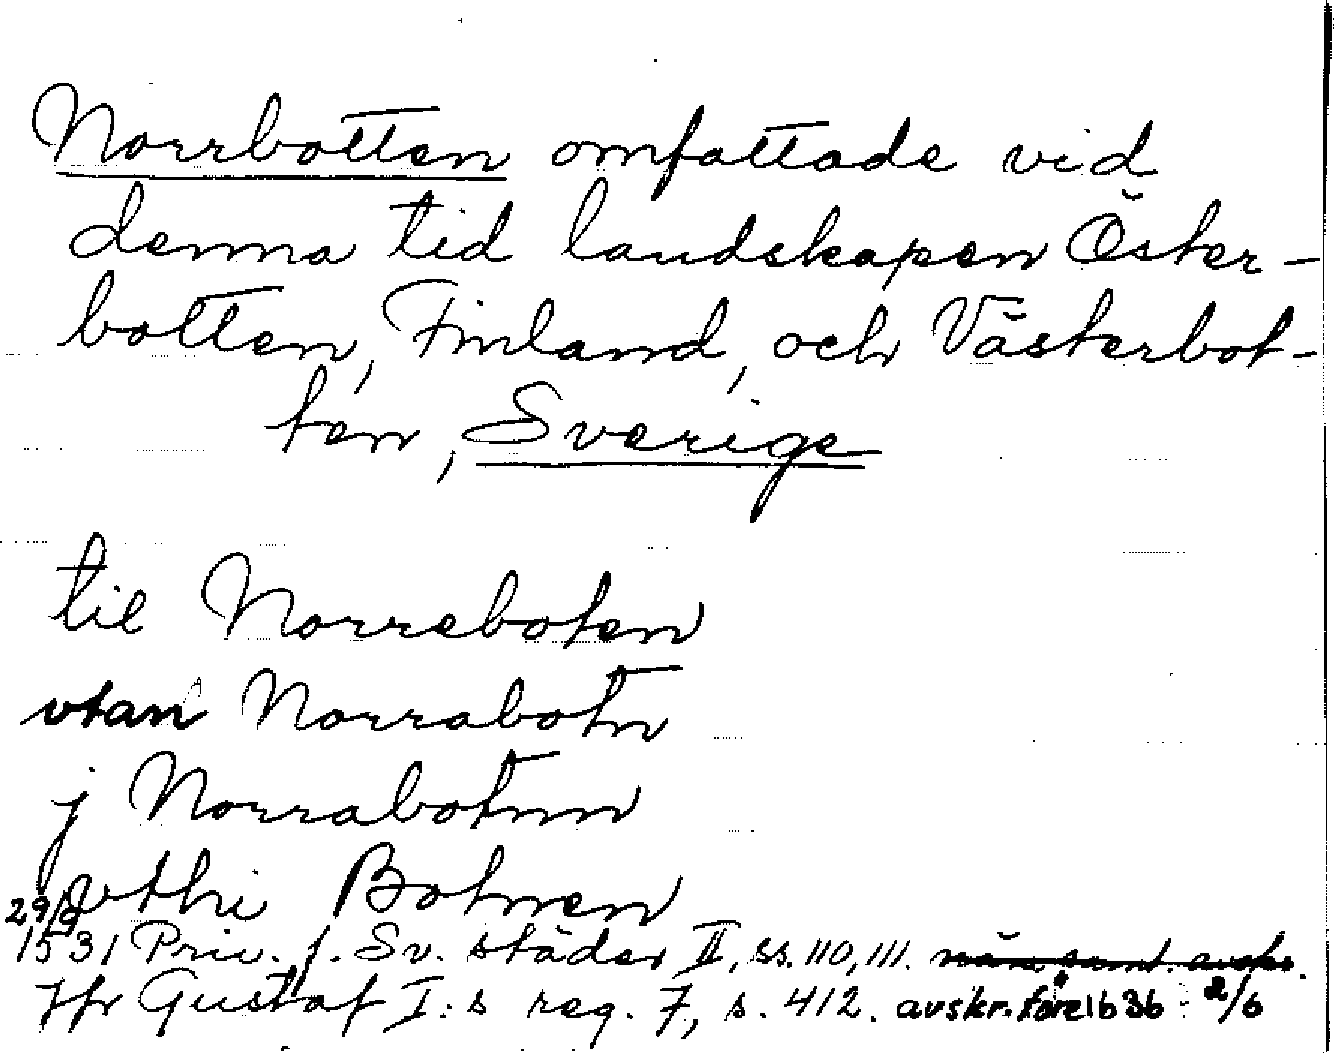 Norrbotten omfattade vid
denna tid landskapen Öster-
botten, Finland, och Västerbot-
ten, Sverige
til Norreboten
vtan Norrabotn
j Norrabotnn
vthi Botnen
1531 Priv. f. Sv. städer II, ss. 110, 111. näst. samt. avskr.
Jfr Gustaf I:s reg. 7, s. 412. avskr. före 1636 2/6